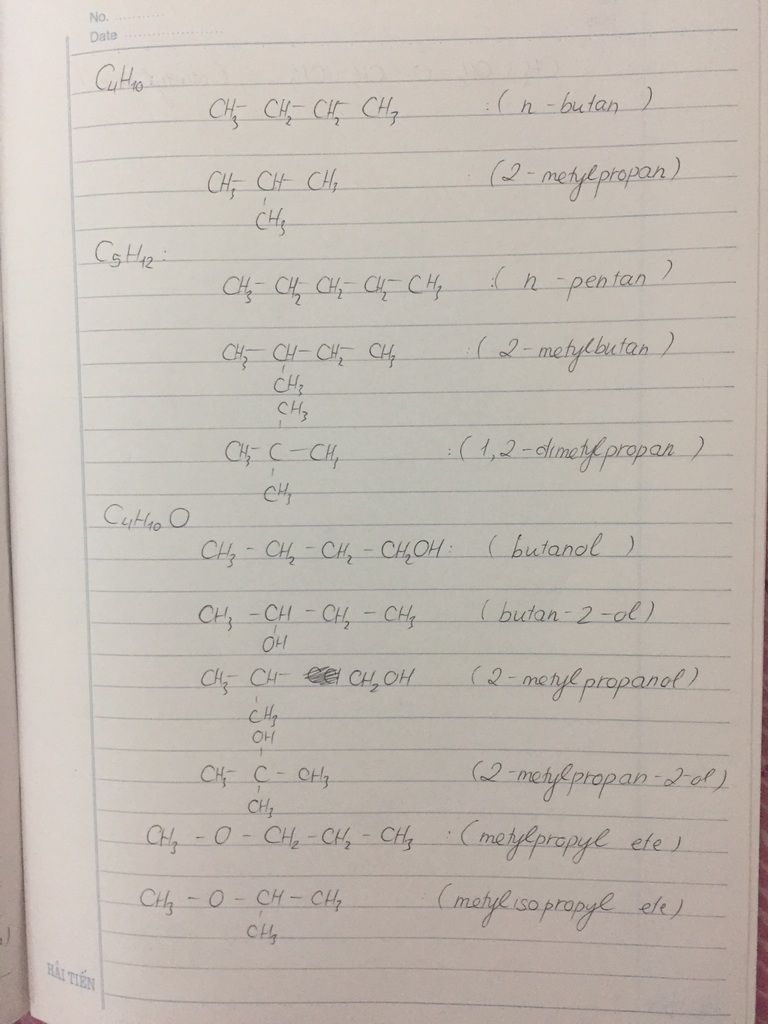 No. ............
Date ........................
C₄H₁₀
CH₃- CH₂- CH₂- CH₃ :( n - butan )
CH₃- CH- CH₃ (2 - metylpropan)
CH₃
C₅H₁₂ :
CH₃- CH₂- CH₂- CH₂- CH₃ :( n - pentan )
CH₃- CH- CH₂- CH₃ :( 2 - metylbutan )
CH₃
CH₃
CH₃- C - CH₃ :( 1,2 - dimetylpropan )
CH₃
C₄H₁₀O
CH₃ - CH₂ - CH₂ - CH₂OH : ( butanol )
CH₃ - CH - CH₂ - CH₃ ( butan - 2 - ol )
OH
CH₃- CH- CH₂OH (2 - metylpropanol)
CH₃
OH
CH₃- C - CH₃ (2 - metylpropan - 2 - ol)
CH₃
CH₃ - O - CH₂ - CH₂ - CH₃ :(metylpropyl ete)
CH₃ - O - CH - CH₃ (metylisopropyl ete)
CH₃
HẢI TIẾN